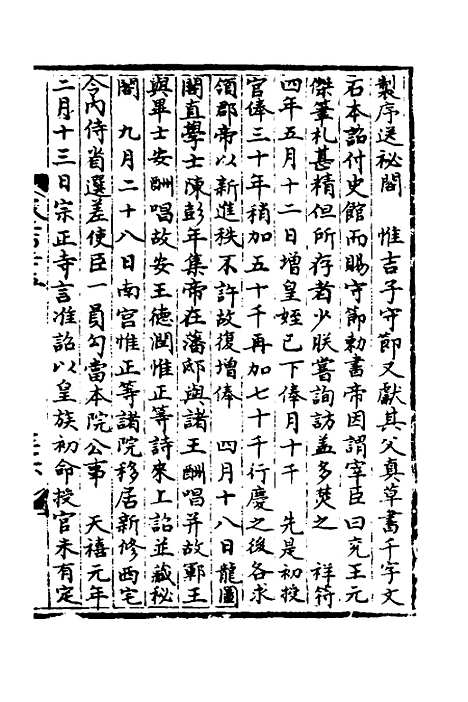 製序送秘閣　惟吉子守節又獻其父真草書千字文
石本詔付史館而賜守節勅書帝因謂宰臣曰兗王元
傑筆札甚精但所存者少朕嘗詢訪盖多焚之　祥符
四年五月十二日增皇姪已下俸月十千　先是初授
官俸三十年稍加五十千再加七十千行慶之後各求
領郡帝以新進秩不許故復增俸　四月十八日龍圖
閣直學士陳彭年集帝在藩邸與諸王酬唱并故鄆王
與畢士安酬唱故安王德潤惟正等詩來上詔並藏秘
閣　九月二十八日南宮惟正等諸院移居新修西宅
今內侍省選差使臣一員勾當本院公事　天禧元年
二月十三日宗正寺言准詔以皇族初命授官未有定